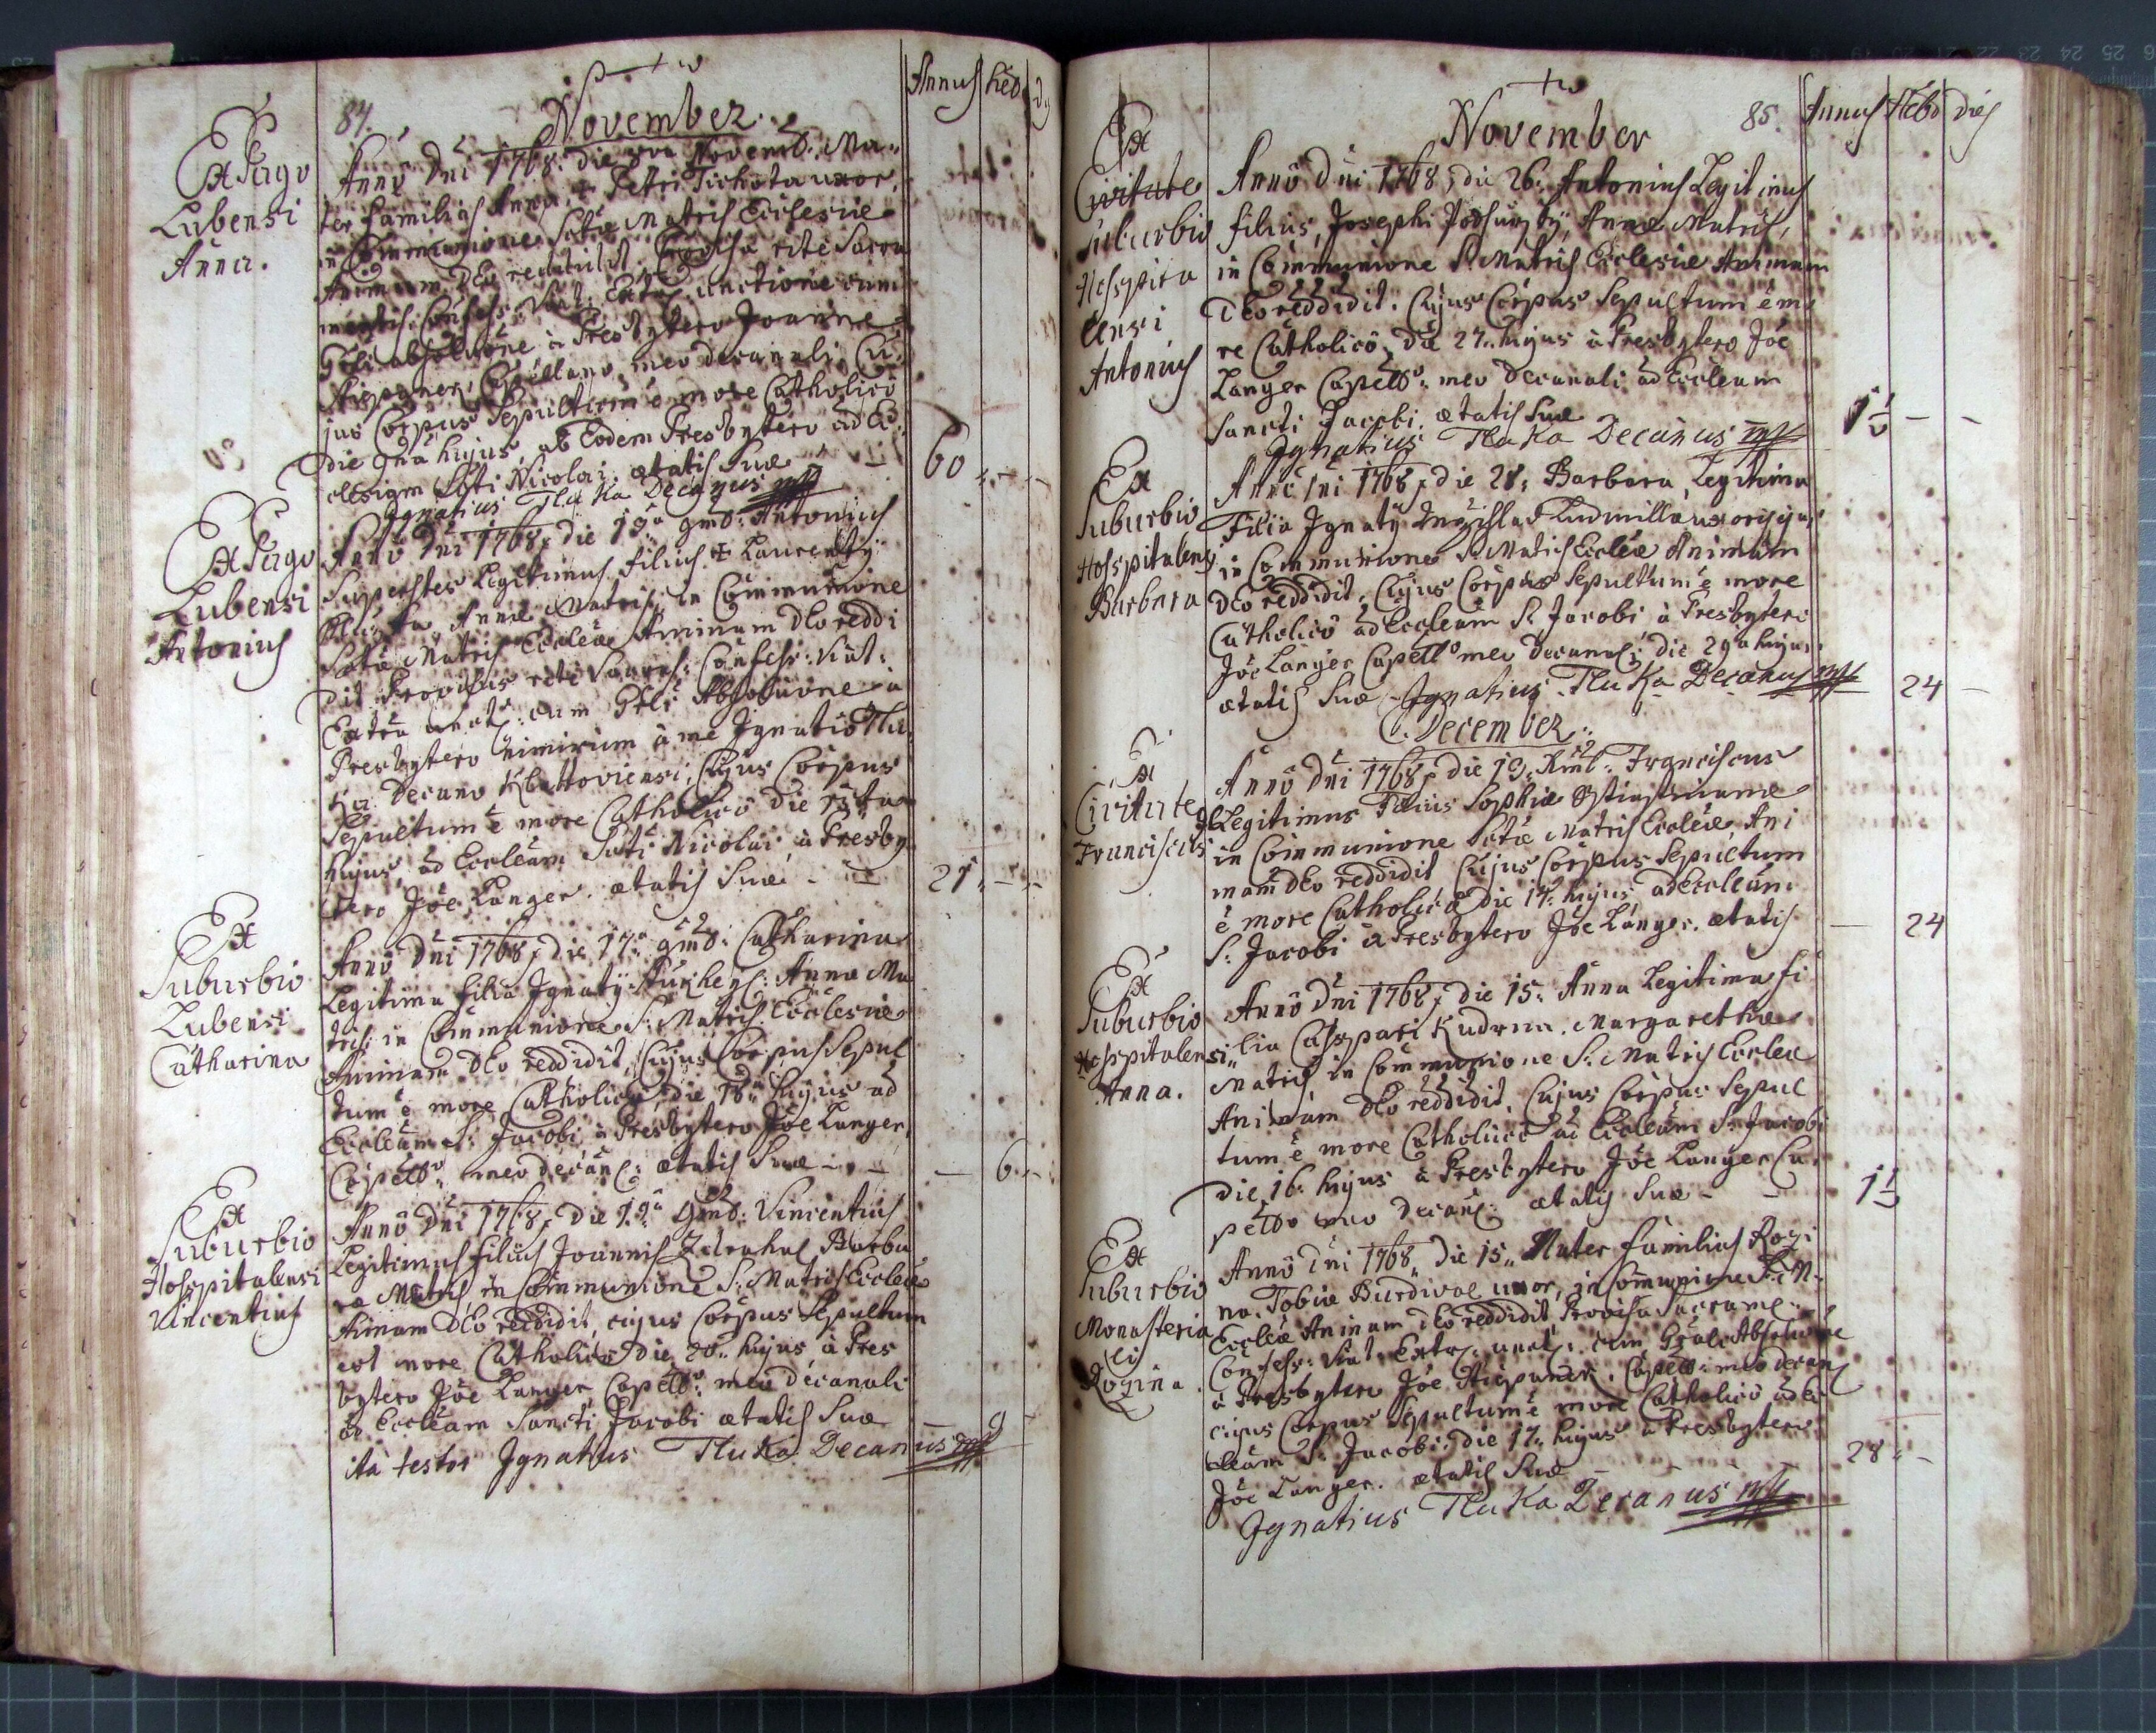 84.
November
Annus hebd. dies
Ex Pago
Lubensi
Anna.
Annô Dnī 1768: die 8va Novemb: Ma-
ter familias Anna, ✝ Petri Tichota uxor,
in Communione Sctæ Matris Ecclesiæ
Animam Deo reddidit. Provisa rite Sacra
mentis: Confess: Viat: Extr: unctione cum
Gnli absolūone à Presbytero Joanne
Capellano meo Decanali, Cu-
jus Corpus Sepultum ē more Catholicô
die 9na hujus, ab Eodem Presbytero ad Ec-
clesiam Scti Nicolai. ætatis Suæ
60
Ignatius Tluka Decanus mp
Ex Pago
Lubensi
Antonius
Annô Dnī 1768, die 13a 9mb: Antonius
Superstes Legitimus filius ✝ Laurentÿ
Annæ Matris, in Communione
Sctæ Matris Eccleæ Animam Deo reddi
dit Provisus rite Sacram: Confess: Viat:
Extra unct: cum Gnli Absolūone a
Presbytero nimirum à me Ignatio Tlu
Ka Decano Klattoviensi, Cujus Corpus
Sepultum ē more Catholicô die 15ta
hujus, ad Eccleam Scti Nicolai à Presby
tero Jōe Langer. ætatis Suæ
21
Ex
Suburbio
Lubensi
Catharina
Annô Dnī 1768, die 17a 9mb: Catharina
Legitima filia Ignatÿ Annæ Ma
tris: in Communione S: Matris Ecclesiæ
Animam Deo reddidit, Cujus Corpus Sepul
tum ē more Catholico, die 18a hujus ad
Eccleam S: Jacobi à Presbytero Jōe Langer,
Capello meo decanl: ætatis Suæ
6
Ex
Suburbio
Hosspitalensi
Vincentius
Annô Dnī 1768, die 19a 9mb: Vincentius
Legitimus filius Joannis Zdrahal Barba
ræ Matris, in Communione S: Matris Eccleæ
Animam Deo reddidit, cujus Corpus Sepultum
est more Catholico die 20. hujus à Pres
bytero Jōe Langer Capello meo decanali
ad Eccleam Sancti Jacobi ætatis Suæ
9
ita testor Ignatius Tluka Decanus mp
November
85.
Annus Hebd dies
Ex
Civitate
Suburbio
Hosspita
lensi
Antonius
Annô Dnī 1768, die 26. Antonius Legitimus
filius, Josephi Annæ Matris,
in Communione S. Matris Ecclesiæ Animam
Deo reddidit. Cujus Corpus Sepultum ē mo
re Catholicô, die 27. hujus à Presbytero Jōe
Langer Capello meo Decanali ad Eccleam
Sancti Jacobi. ætatis Suæ
Ignatius Tluka Decanus mp
Ex
Suburbio
Hosspitalensi
Barbara
Annô Dnī 1768, die 28. Barbara, Legitima
Filia Ignatÿ Ludmilla uxoris ejus,
in Communione S. Matris Eccleæ Animam
Deo reddidit, Cujus Corpus Sepultum ē more
Catholicô ad Eccleam S. Jacobi à Presbytero
Jōe Langer Capello meo Decanali, die 29a hujus
ætatis Suæ Ignatius Tluka Decanus mp
24
December
Ex
Civitate
Franciscus
Annô Dnī 1768, die 13. Xmb: Franciscus
Legitimus Filius Sophiæ
in Communione Sctæ Matris Eccleæ, Ani
mam Deo reddidit Cujus Corpus Sepultum
ē more Catholicô die 14. hujus, ad Eccleam
S. Jacobi à Presbytero Jōe Langer. ætatis
24
Ex
Suburbio
Hosspitalensi
Anna.
Annô Dnī 1768, die 15. Anna Legitima fi
lia Casspari Kudrna. Margarethæ
Matris in Communione S. Matris Eccleæ
Animam Deo reddidit, Cujus Corpus Sepul
tum ē more Catholico ad Eccleam S. Jacobi
die 16. hujus à Presbytero Jōe Langer Ca
pello meo Decanl: ætatis Suæ
Ex
Suburbio
Monasteria
li
Rozina.
Annô Dnī 1768, die 15. Mater familias Rozi
na Tobiæ Burdival uxor, in Communione S. M.
Eccleæ Animam Deo reddidit, Provisa Sacraml:
Confess: Viat: Extr: unct: cum Gnali Absolūone
à Presbytero Jōe Capello meo decanl
cujus Corpus Sepultum ē more Catholico ad Ec
cleam S. Jacobi die 17. hujus à Presbytero
Jōe Langer. ætatis Suæ
28
Ignatius Tluka Decanus mp